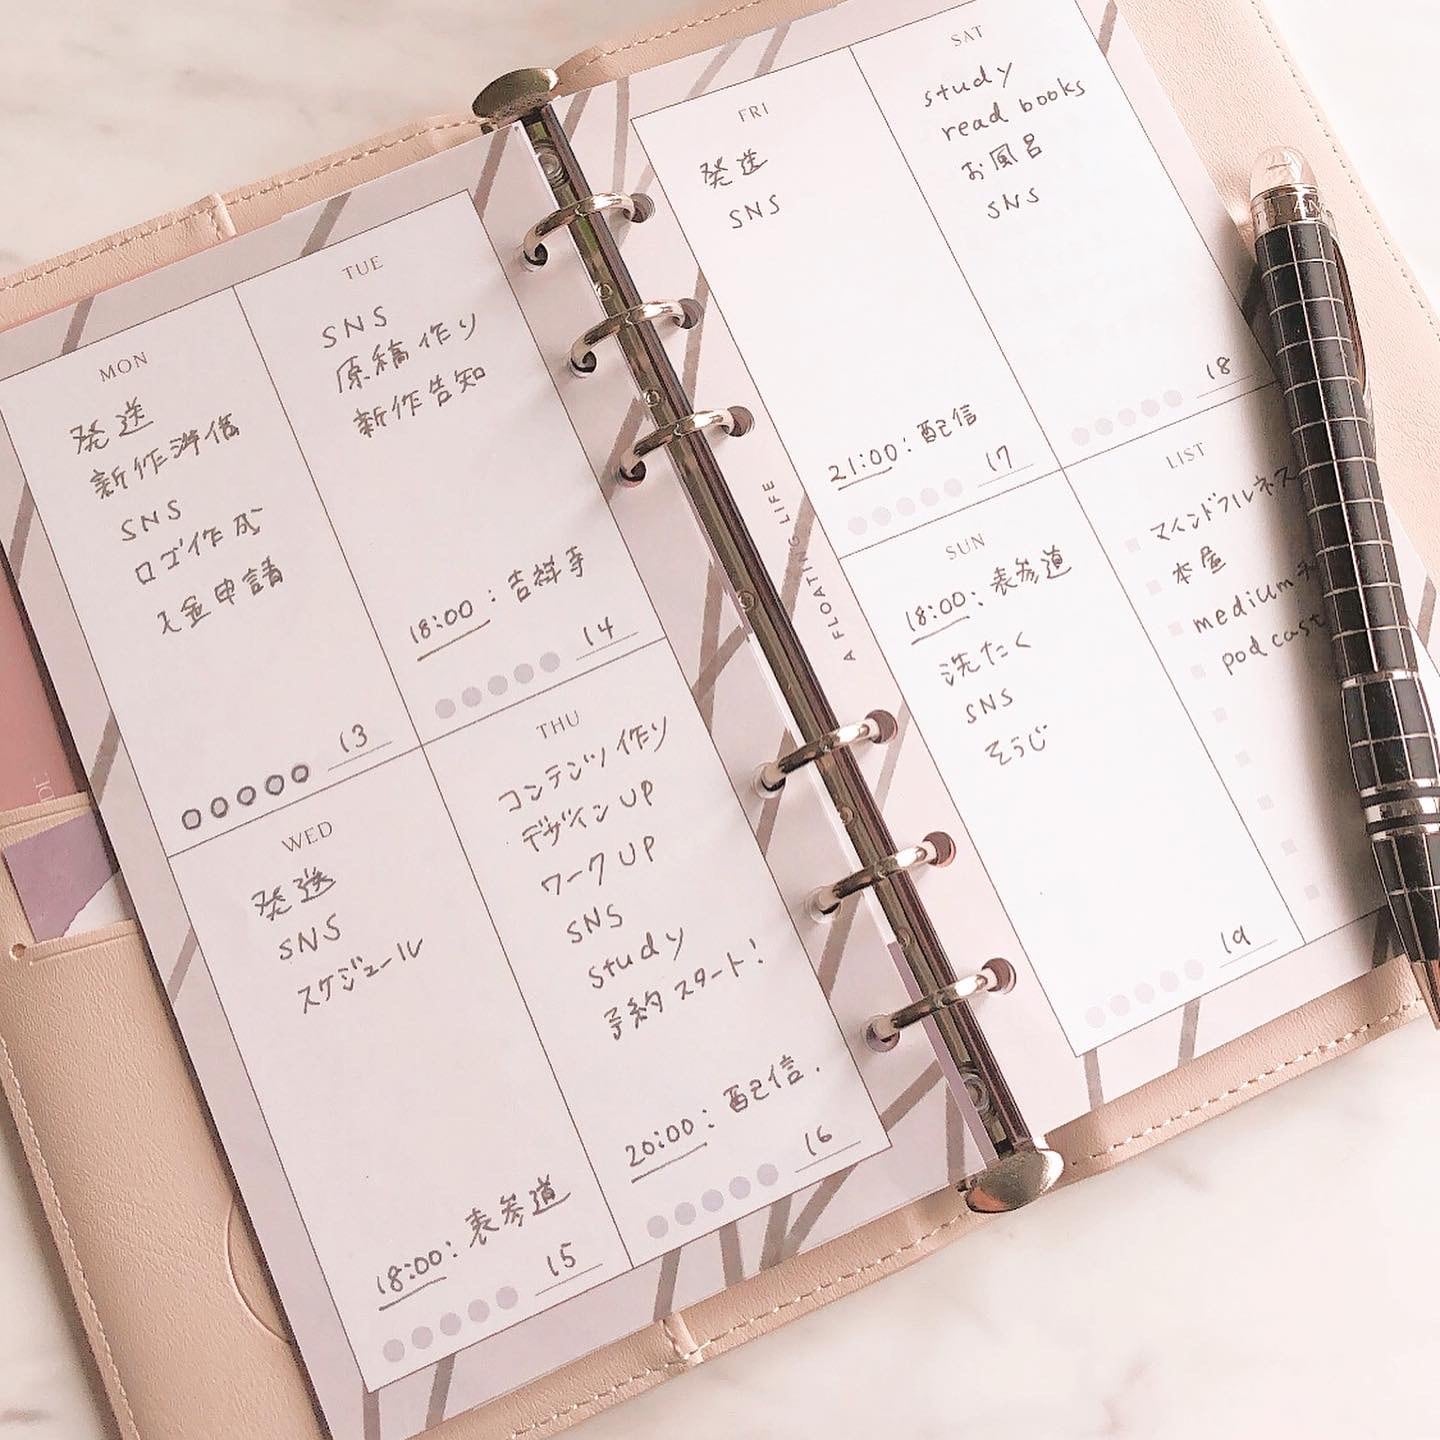 MON
発送
新作準備
SNS
ロゴ作成
入金申請
13
TUE
SNS
原稿作り
新作告知
18:00：吉祥寺
14
WED
発送
SNS
スケジュール
18:00：表参道
15
THU
コンテンツ作り
デザインUP
ワークUP
SNS
study
予約スタート！
20:00：配信.
16
A FLOATING LIFE
FRI
発送
SNS
21:00：配信
17
SAT
study
read books
お風呂
SNS
18
SUN
18:00：表参道
洗たく
SNS
そうじ
19
LIST
マインドフルネス
本屋
medium
podcast